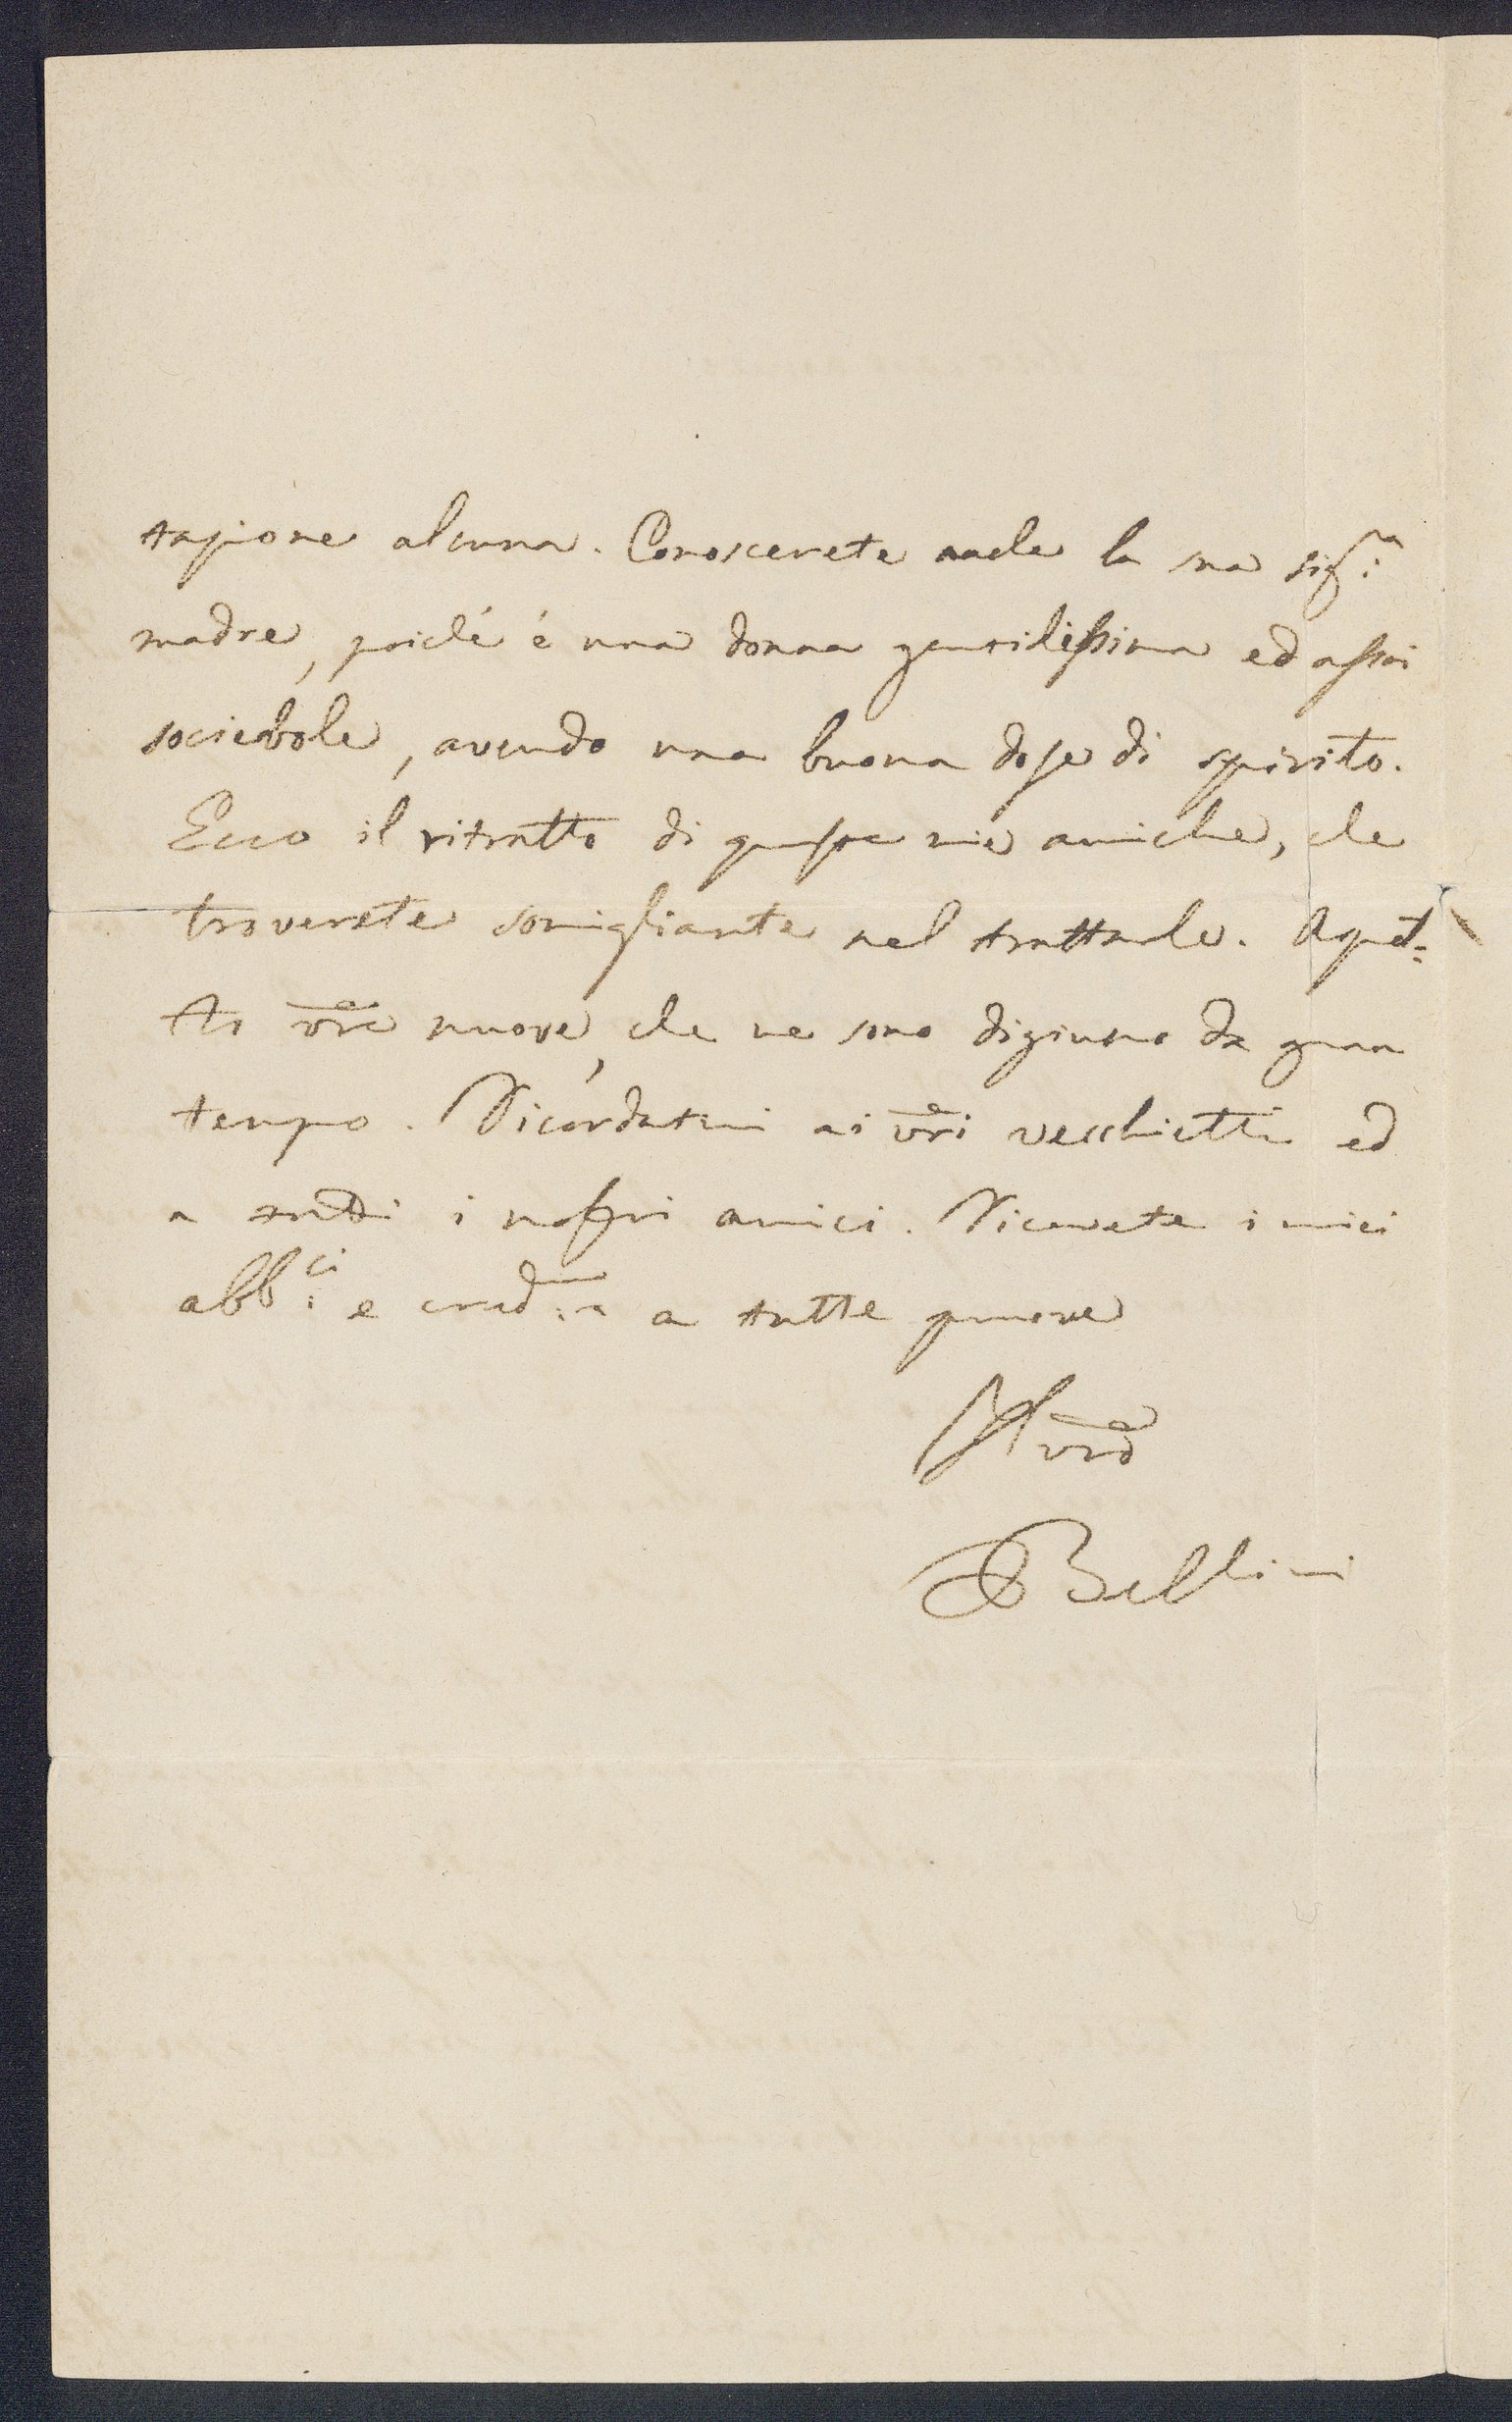 tazione alcuna. Conoscerete anche la sua sig:ra
madre, poichè è una donna gentilissima ed assai
socievole, avendo una buona dose di spirito.
Ecco il ritratto di queste mie amiche, che
troverete somigliante nel trattarle. Aspet=
to vre nuove, che ne sono digiuno da gran
tempo. Ricordatemi ai vri vecchietti ed
a tutti i nostri amici. Ricevete i miei
abb:ci e cred:mi a tutte pruove
Il vro
Bellini